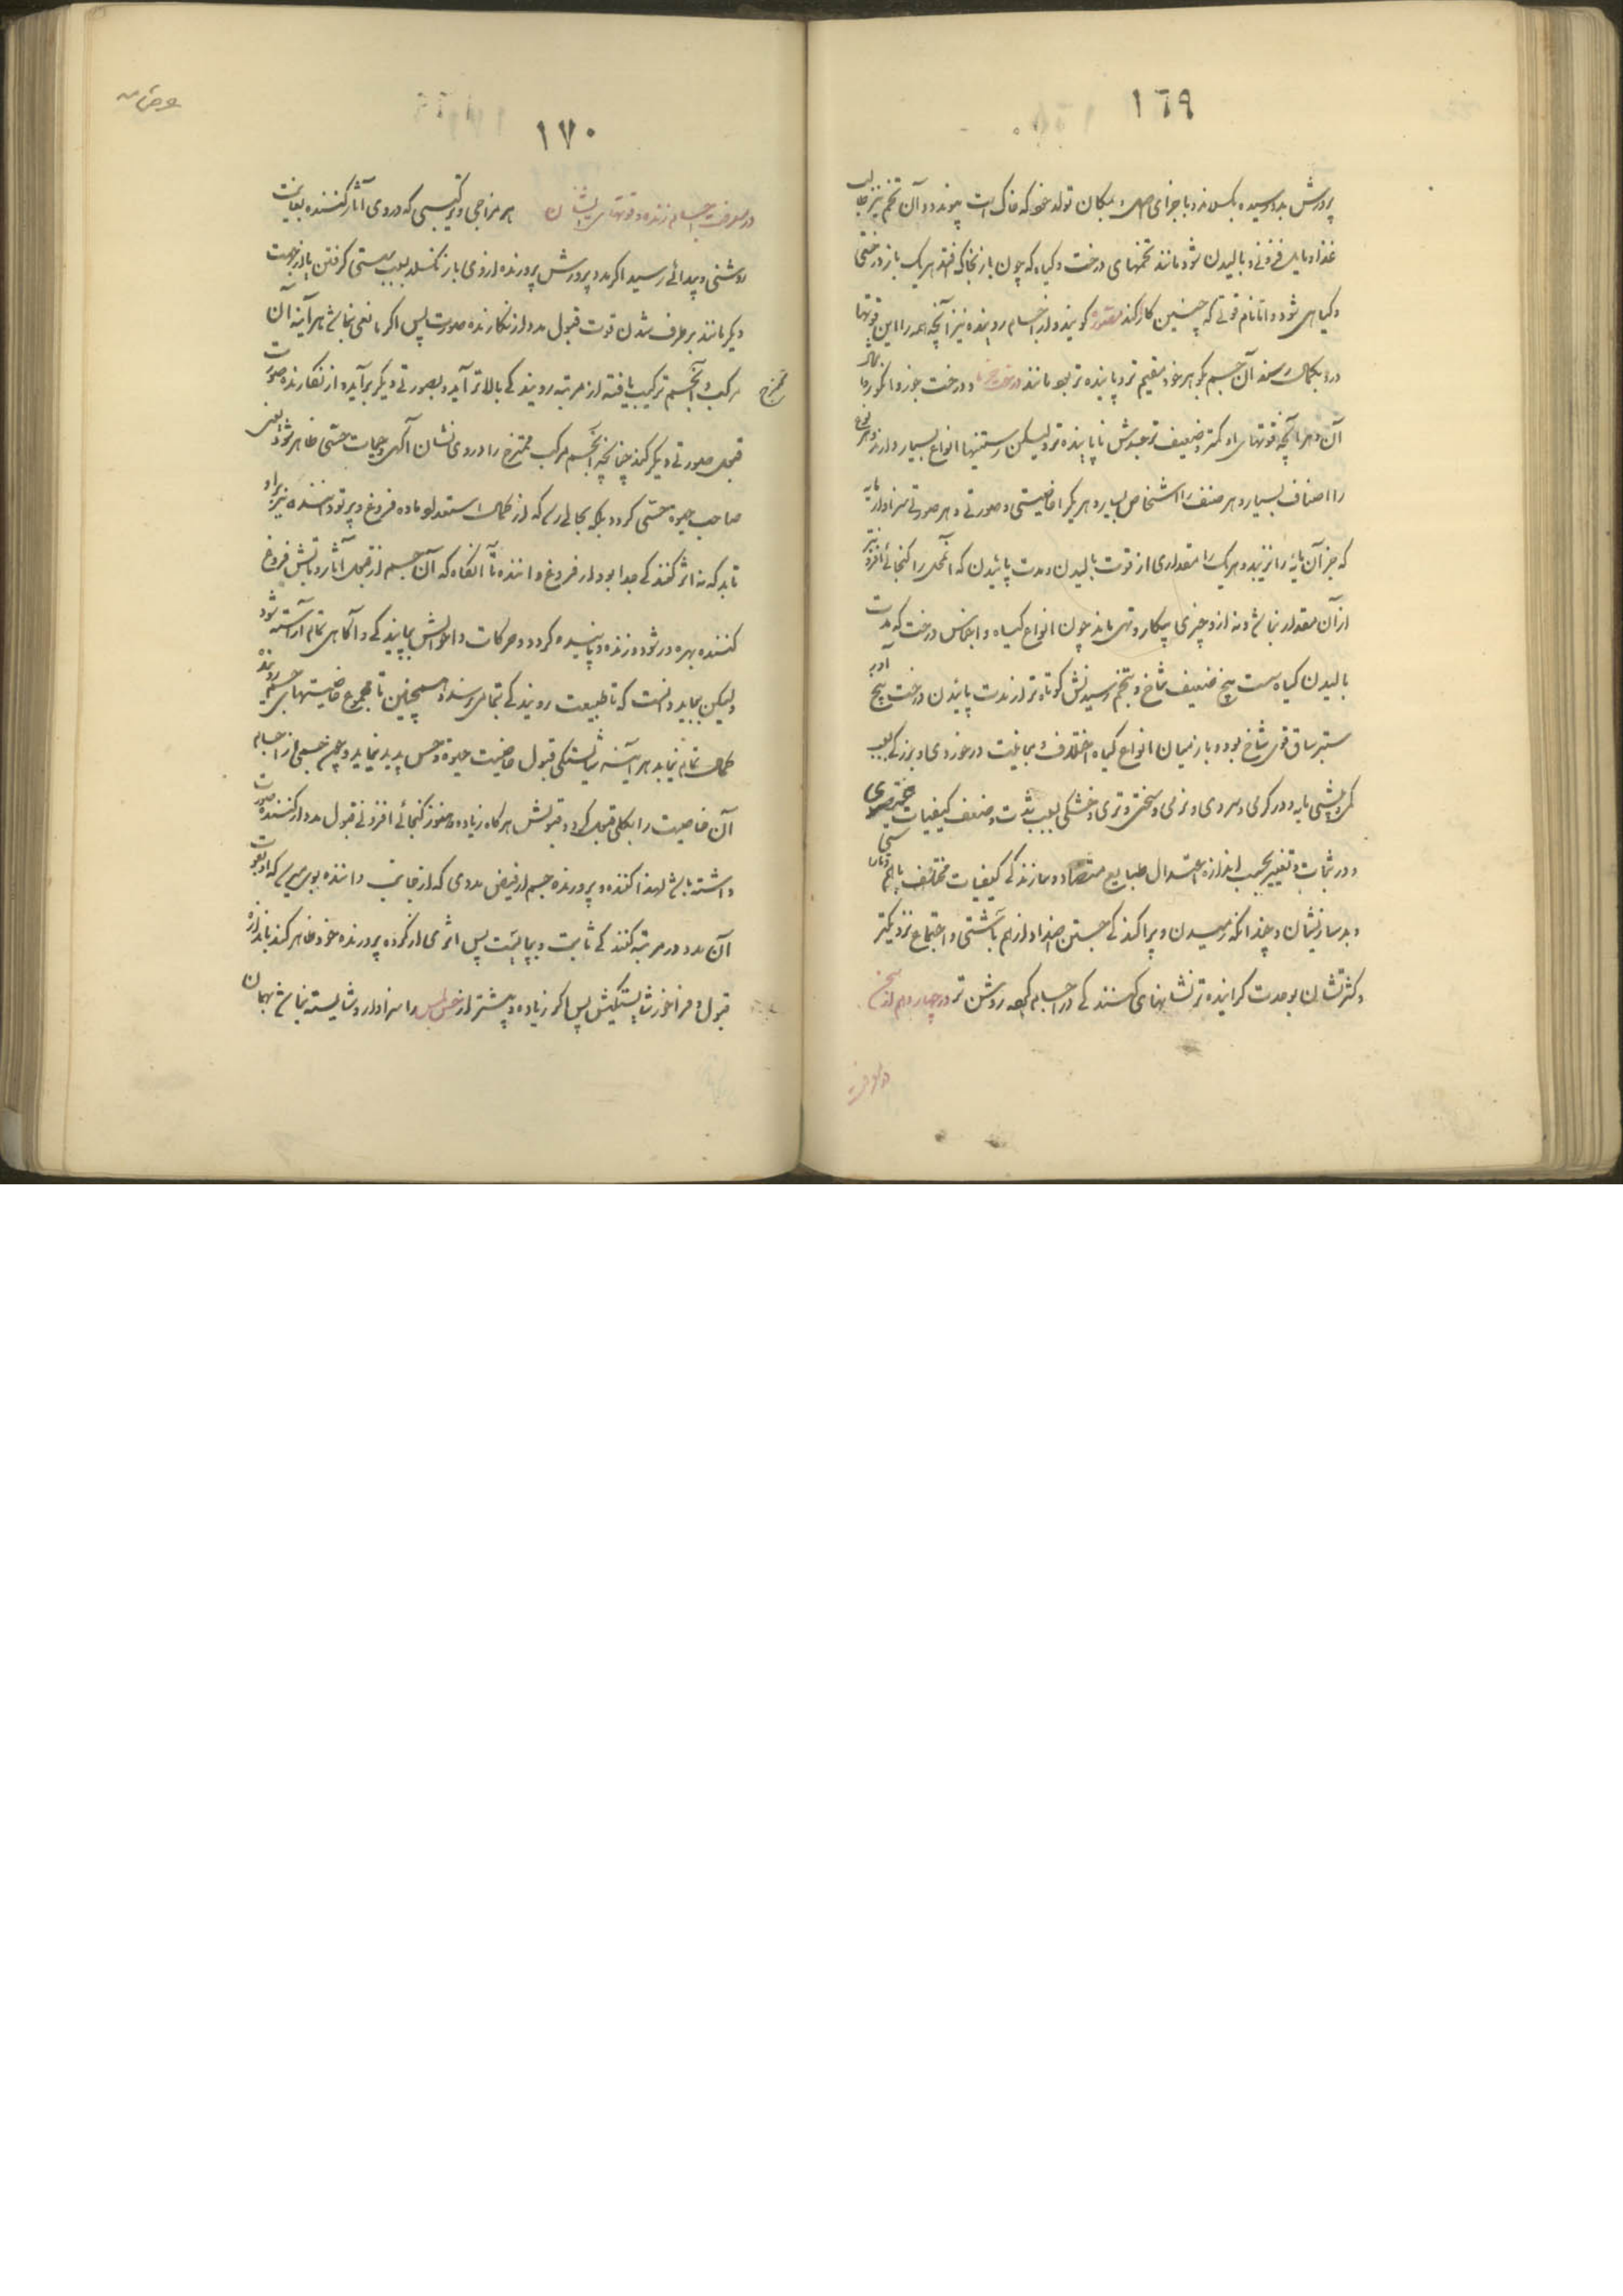 ١٦٩
پرورش بدو رسیده بکسلد و با جزای اصلی بمکان تولد خود که خاک است پیوندد و آن تخم نیز طالب
غذا و مایل فزونی و بالیدن شود مانند تخمهای درخت و گیاه که چون باز بخاک افتد هر یک باز درختی
و گیاهی شود و اما نام قوتی که چنین کار کند گویند و از اجسام روینده نیز آنچه همه را این قوتها
درو بکمال رسند آن جسم بگوهر خود مقیم تر و پاینده تر بود مانند درخت خرما و درخت جوز و انگور و مانند
آن و هر آنچه قوتهای او کمتر و ضعیف تر بودش ناپاینده تر و لیکن رستنیها انواع بسیار دارند و هر نوع
را اصناف بسیار و هر صنف را اشخاص بسیار و هر یک را خاصیتی و صورتی و هر صورتی سزاوار مایه
که جز آن مایه را نزیبد و هر یک را مقداری از قوت بالیدن و مدت پائیدن که آن محل را گنجائی افزونتر
از آن مقدار نباشد و نه از و چیزی بیکار و تهی ماند چون انواع گیاه و اجناس درخت که مدت
بالیدن گیاه سست بیخ ضعیف شاخ و بتخم رسیدنش کوتاه تر از مدت پایندن درخت بیخ آور
ستبر ساق قوی شاخ بود و باز میان انواع گیاه اختلاف و مباینت در خوردی و بزرگی بسبب
کمی و بیشی مایه و در گرمی و سردی و نرمی و سختی و تری و خشکی بسبب شدت و ضعف کیفیات عنصری
و در ثبات و تغییر بحسب اندازه اعتدال طبایع متضاد و سازندگی کیفیات مختلف باهم
و بد سازیشان و چندانکه رمیدن و پراکندگی جستن اضداد از هم باشتی و اجتماع نزدیکتر
و کثرتشان بوحدت گراینده تر نشانهای کنندگی در اجسام مرکبه روشن تر در چهاردهم از سخن
در معرفت
١٧٠
در معرفت اجسام زنده و قوتهای ایشان هر مزاجی و ترکیبی که در وی آثار کننده بغایت
روشنی و پیدائی رسید اگر مدد پرورش پرورنده از وی باز نگسلد بسبب سستی گرفتن یا از جهت
دیگر مانند برطرف شدن قوت قبول مدد از نگارنده صورت پس اگر مانعی نباشد هر آینه آن
مرکب و آن جسم ترکیب یافته از مرتبه رویندگی بالاتر آید و بصورتی دیگر برآید و از نگارنده صورت
ممتزج
قبول صورتی دیگر کند چنانچه آن جسم مرکب ممتزج را در وی نشان آگهی و حیات حسّی ظاهر شود یعنی
صاحب حیوة حسّی گردد بلکه بجائی رسد که از کمال استعداد ماده فروغ و پرتو داننده نیز بر او
تابد که نه اثر کنندگی جدا بود از فروغ داننده تا آنگاه که آن جسم از قبول آثار و تابش فروغ
کننده بهره ور شود و زنده و پاینده گردد و حرکات و احوالش بپایندگی و آگاهی تمام آراسته شود
ولیکن بباید دانست که تا طبیعت رویندگی بتمامی نرسد و همچنین تا مجموع خاصیتهای جسم روینده
کمال تمام نیابد هر آینه شایستگی قبول خاصیت حیوة و حس پدید نیاید و چون جسمی از اجسام
آن خاصیت را بکلی قبول کرد و قبولش هرگاه زیاده و هنوز گنجائی افزونی قبول مدد از کننده صورت
داشته باشد لهذا کننده و پرورنده جسم از فیض مددی که از جانب داننده بوی میرسد که او بقوت
آن مدد در مرتبه کنندگی ثابت و بپایست پس اثری از کرده پرورنده خود ظاهر کند باندازه
قبول و فراخور شایستگیش پس اگر زیاده و بیشتر از حس لمس را سزاوار و شایسته نباشد بهمان